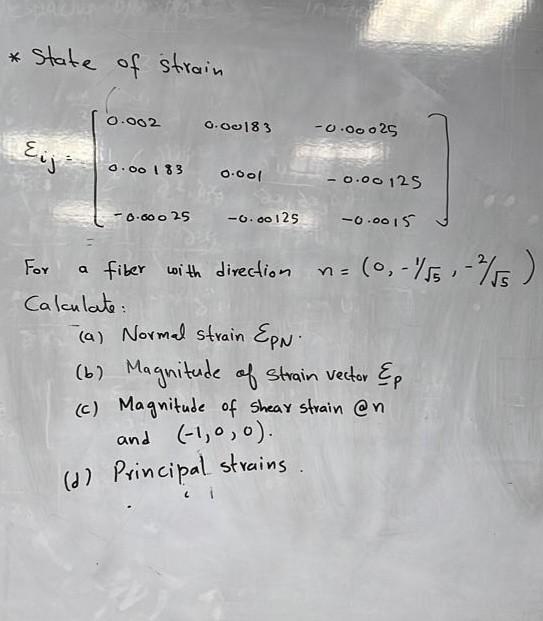 * State of strain
0.002 0.00183 -0.00025
Eij = 0.00183 0.001 -0.00125
-0.00025 -0.00125 -0.0015
For a fiber with direction n = (0, -1/√5, -2/√5)
Calculate:
(a) Normal strain EPN.
(b) Magnitude of strain vector EP
(c) Magnitude of shear strain @n
and (-1,0,0).
(d) Principal strains.